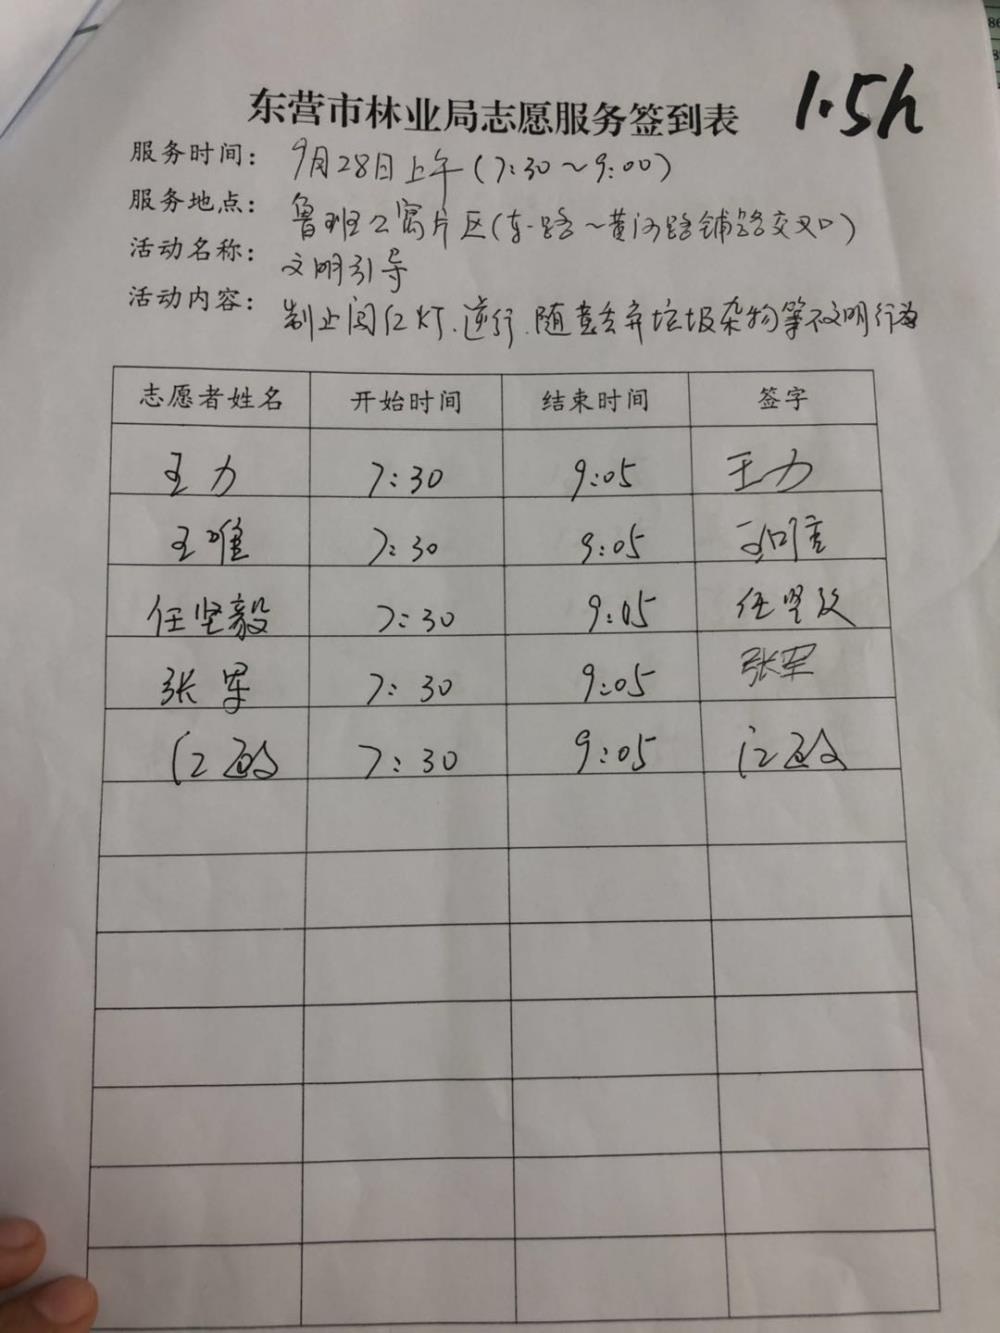 东营市林业局志愿服务签到表 1.5h
服务时间: 9月28日上午(7:30～9:00)
服务地点: 鲁班公寓片区(东一路～黄河路辅路交叉口)
活动名称: 文明引导
活动内容: 制止闯红灯、逆行、随意丢弃垃圾杂物等不文明行为
志愿者姓名 开始时间 结束时间 签字
王力 7:30 9:05 王力
王唯 7:30 9:05 王唯
任坚毅 7:30 9:05 任坚毅
张军 7:30 9:05 张军
7:30 9:05